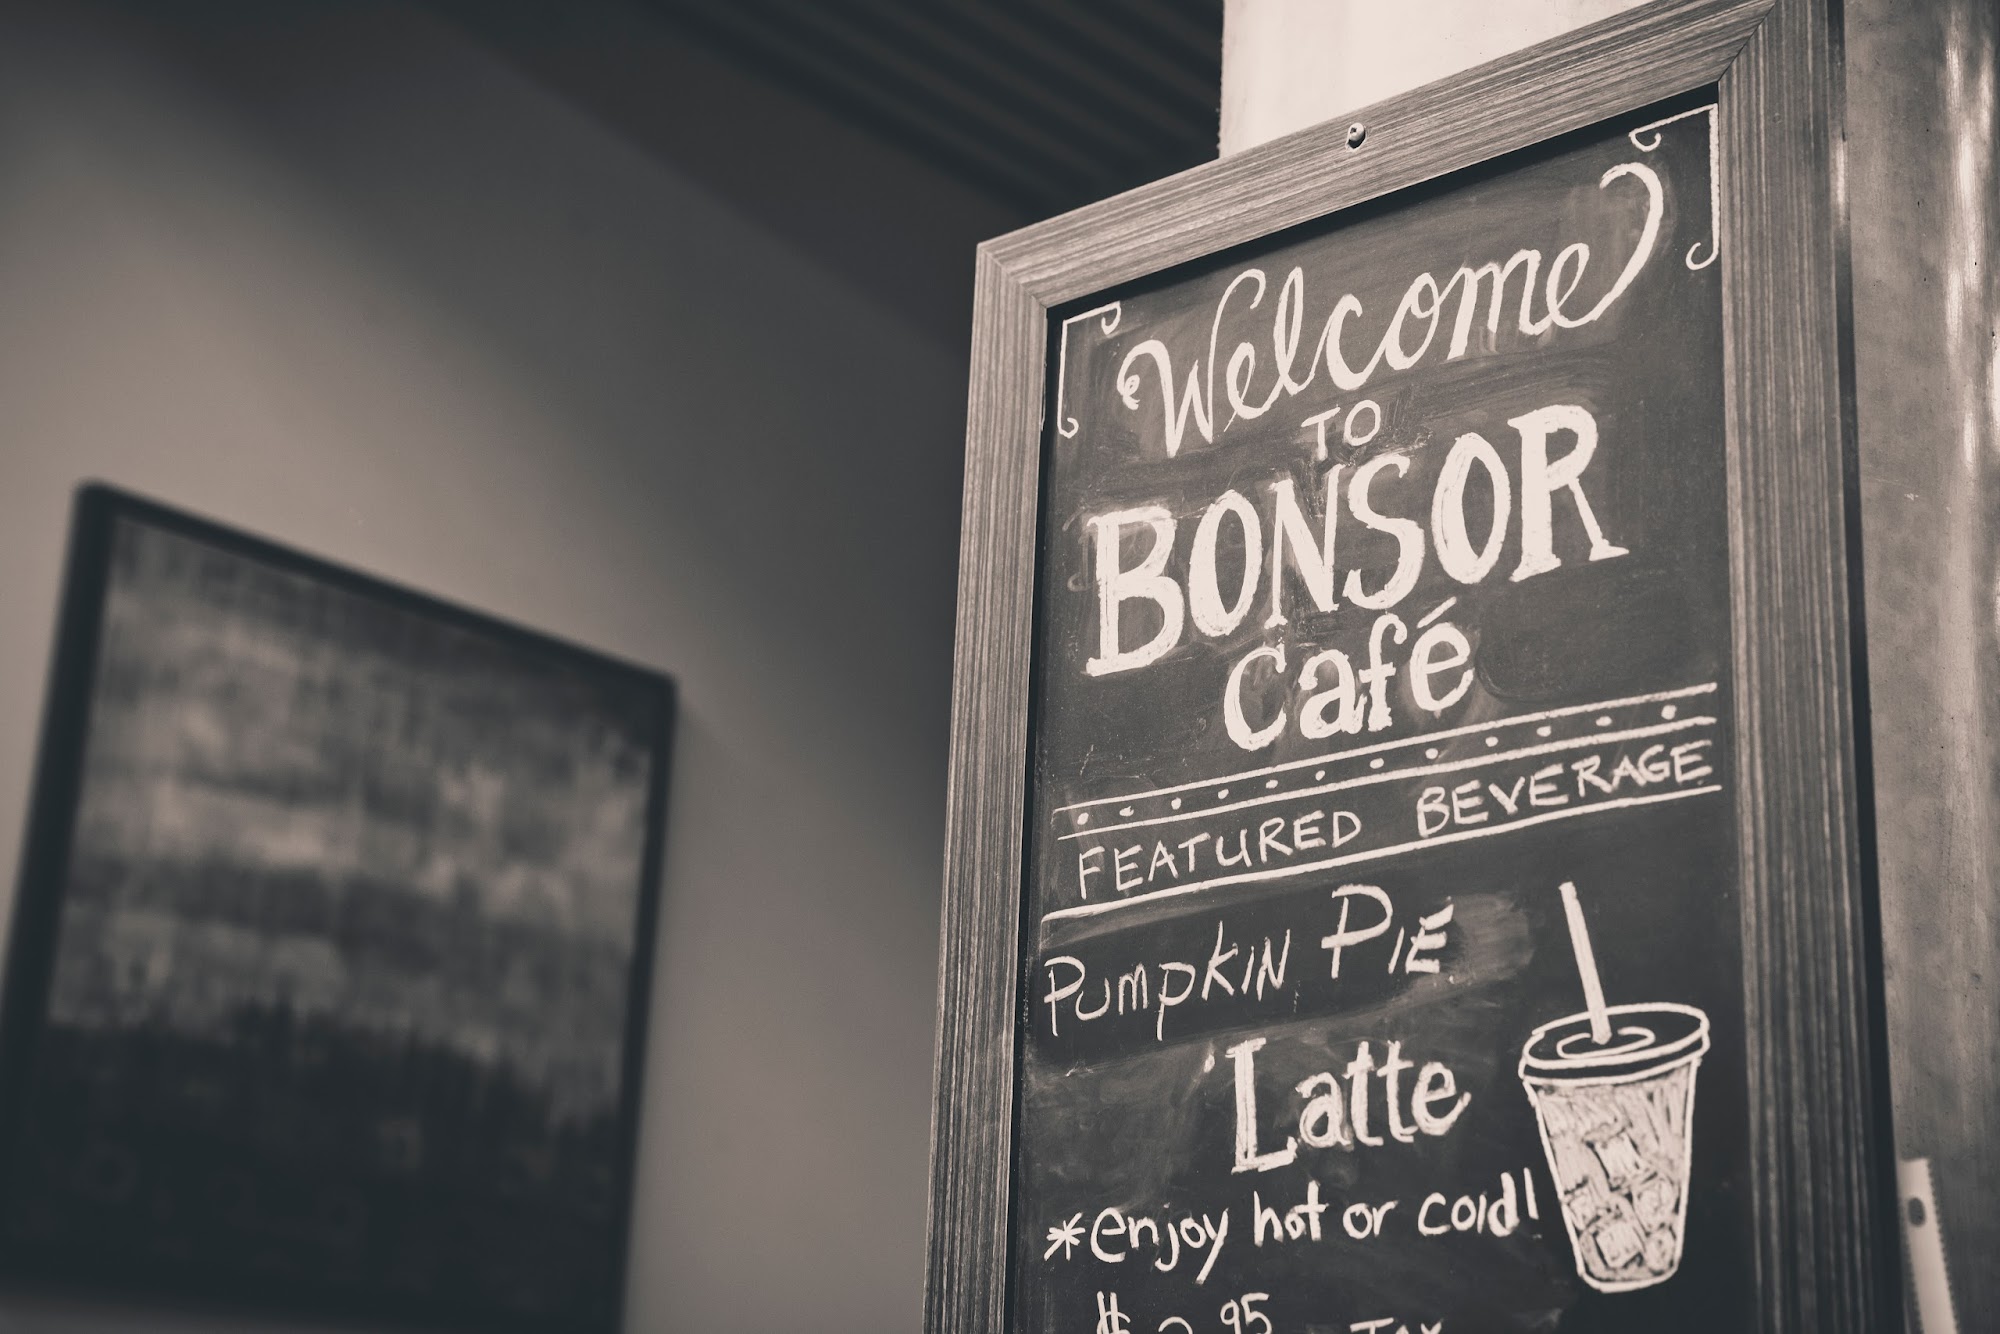 Welcome
TO
BONSOR
Café
FEATURED BEVERAGE
PUMPKIN PIE
Latte
*enjoy hot or cold!